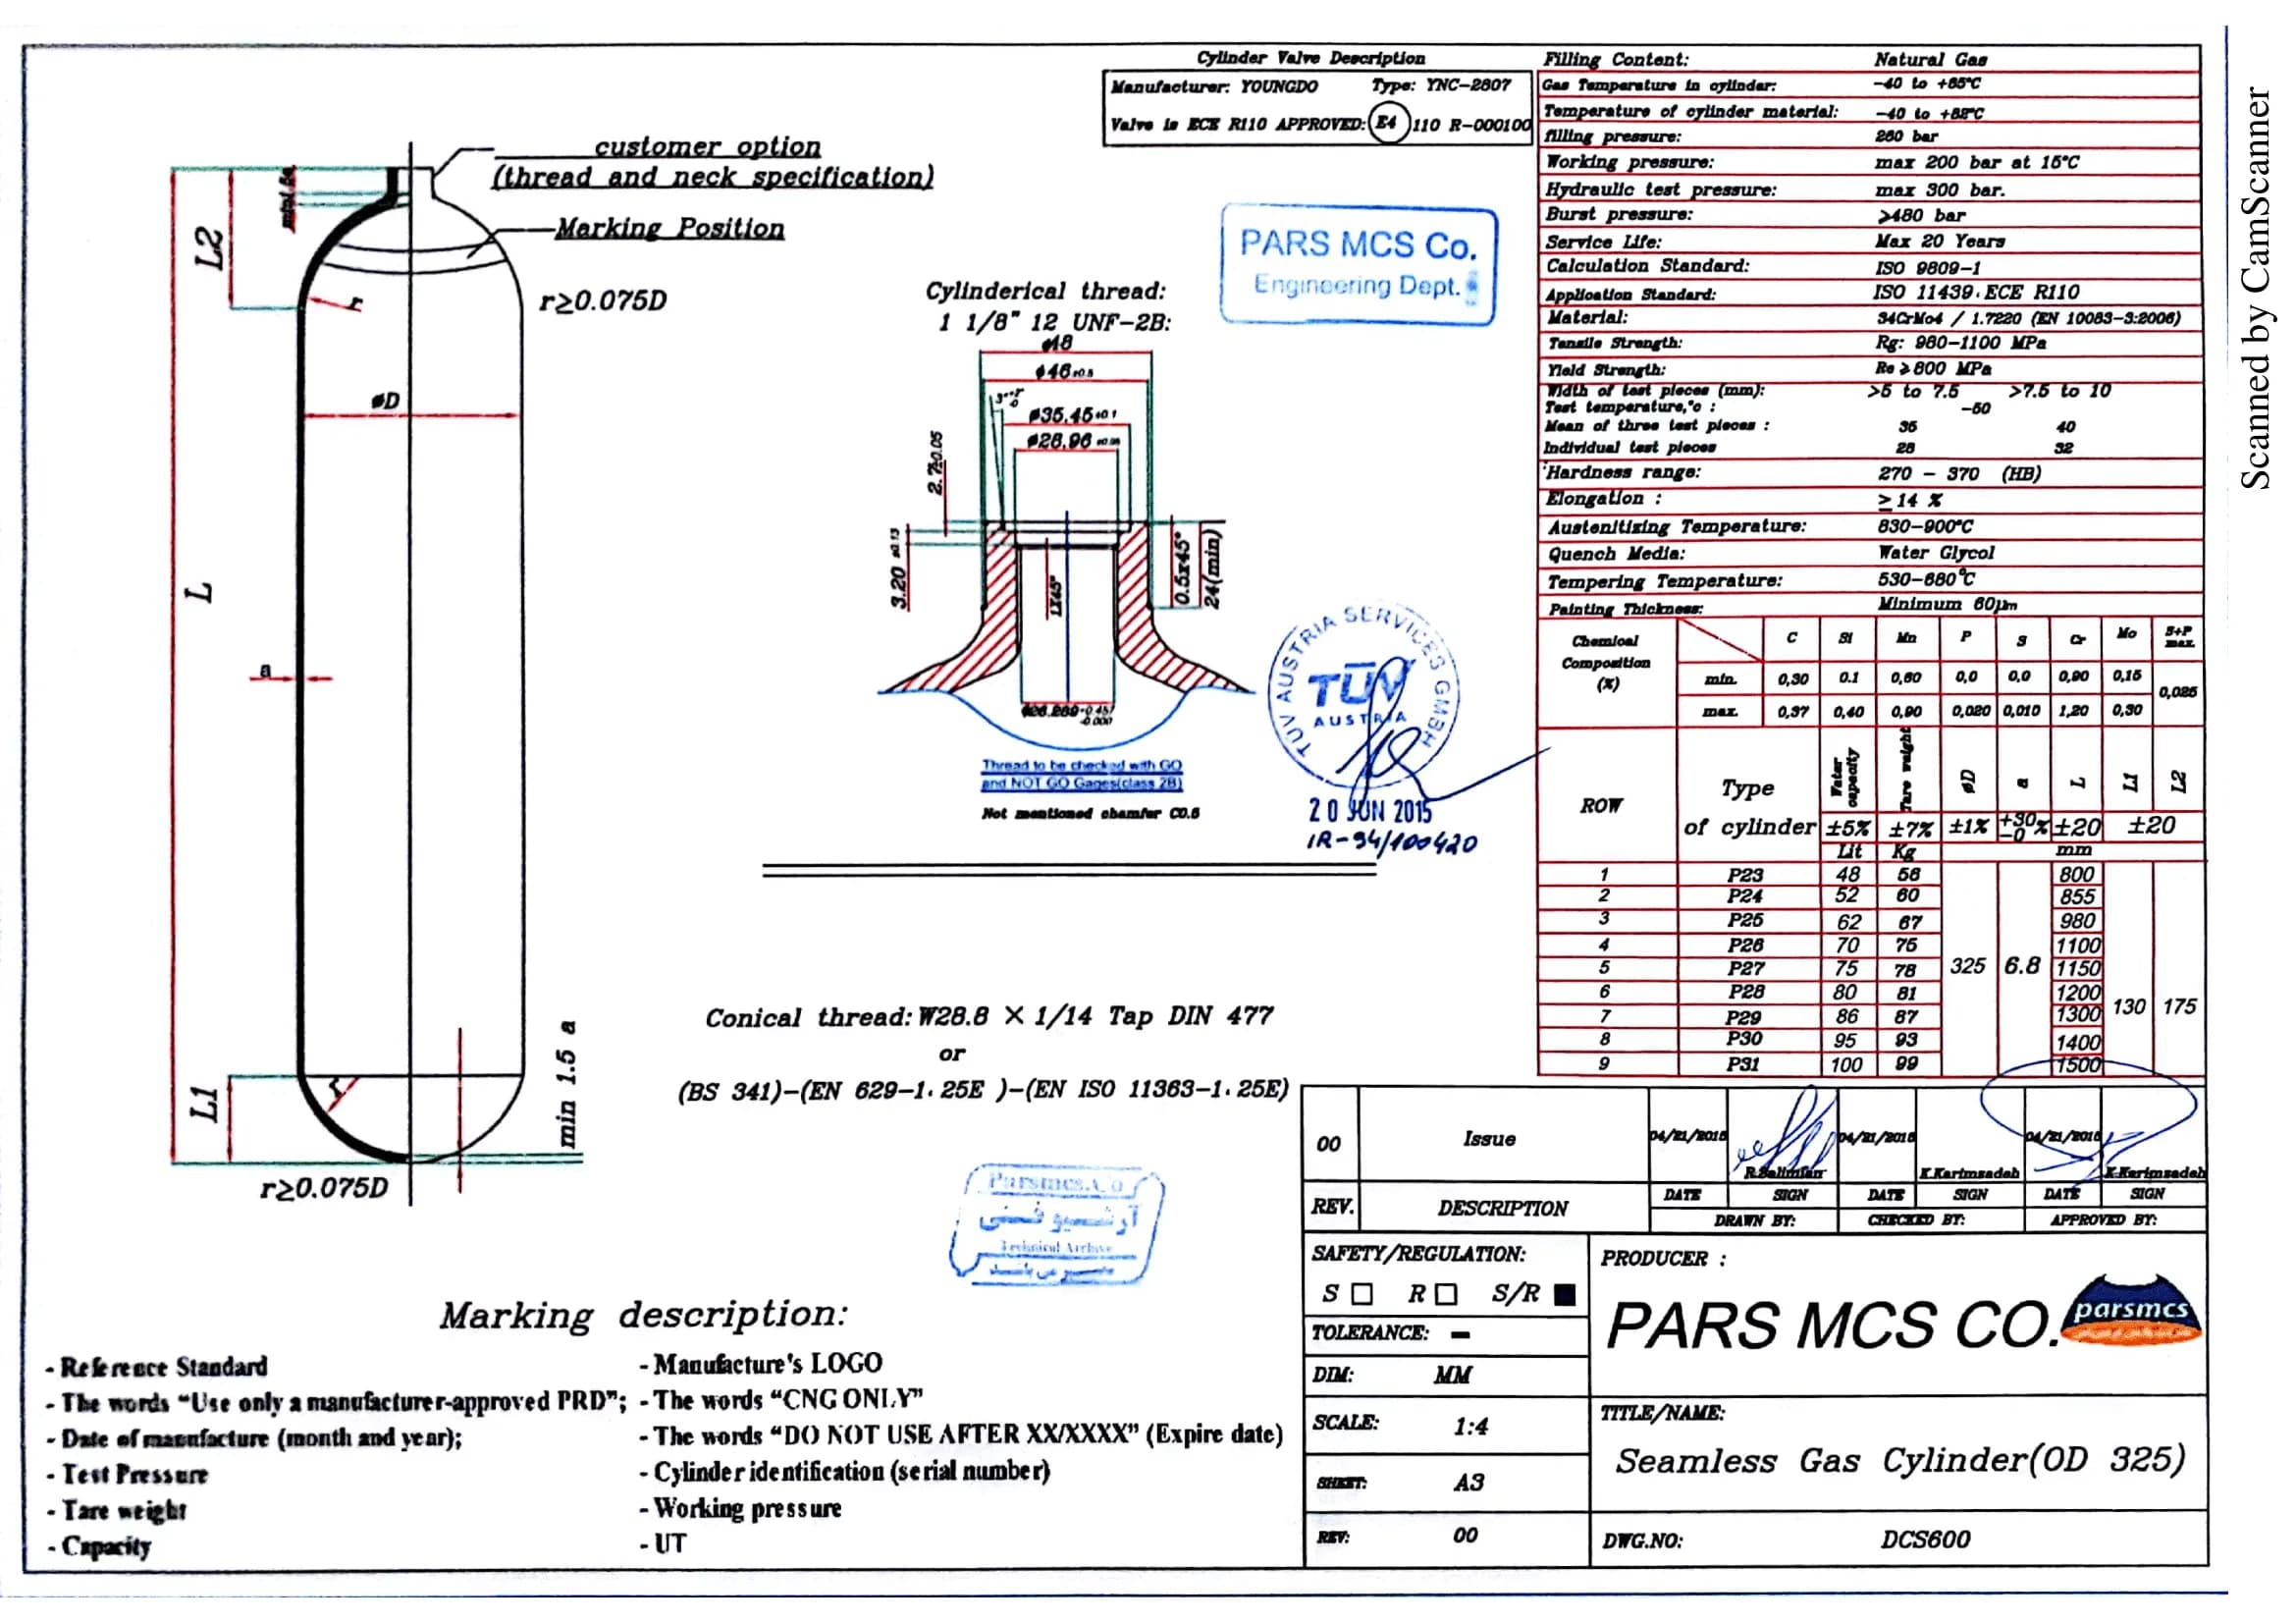 Cylinder Valve Description
Manufacturer: YOUNGDO Type: YNC-2807
Valve is ECE R110 APPROVED: E4 110 R-000100
customer option
(thread and neck specification)
Marking Position
L2
r
r≥0.075D
øD
L
a
L1
min 1.5 a
r≥0.075D
PARS MCS Co.
Engineering Dept.
Cylinderical thread:
1 1/8" 12 UNF-2B:
ø48
ø46±0.5
ø35.45±0.1
ø28.96
2.7±0.05
3.20 ±0.13
1X45°
0.5x45°
24(min)
Thread to be checked with GO
and NOT GO Gages(class 2B)
Not mentioned chamfer C0.5
TÜV AUSTRIA SERVICES GMBH
TÜV
AUSTRIA
20 JUN 2015
IR-94/100420
Conical thread: W28.8 X 1/14 Tap DIN 477
or
(BS 341)-(EN 629-1. 25E )-(EN ISO 11363-1. 25E)
Parsmcs.Co
آرشیو فنی
Technical Archive
Marking description:
- Reference Standard
- The words “Use only a manufacturer-approved PRD”;
- Date of manufacture (month and year);
- Test Pressure
- Tare weight
- Capacity
- Manufacture's LOGO
- The words “CNG ONLY”
- The words “DO NOT USE AFTER XX/XXXX” (Expire date)
- Cylinder identification (serial number)
- Working pressure
- UT
Filling Content: Natural Gas
Gas Temperature in cylinder: -40 to +65°C
Temperature of cylinder material: -40 to +82°C
filling pressure: 260 bar
Working pressure: max 200 bar at 15°C
Hydraulic test pressure: max 300 bar.
Burst pressure: ≥480 bar
Service Life: Max 20 Years
Calculation Standard: ISO 9809-1
Application Standard: ISO 11439, ECE R110
Material: 34CrMo4 / 1.7220 (EN 10083-3:2006)
Tensile Strength: Rg: 980-1100 MPa
Yield Strength: Re ≥800 MPa
Width of test pieces (mm): >5 to 7.5 >7.5 to 10
Test temperature,°c : -50
Mean of three test pieces : 35 40
Individual test pieces 28 32
Hardness range: 270 - 370 (HB)
Elongation : ≥ 14 %
Austenitizing Temperature: 830-900°C
Quench Media: Water Glycol
Tempering Temperature: 530-680°C
Painting Thickness: Minimum 60µm
Chemical Composition (%) C Si Mn P S Cr Mo S+P max.
min. 0,30 0.1 0,60 0,0 0,0 0,90 0,15 0,025
max. 0,37 0,40 0,90 0,020 0,010 1,20 0,30
ROW Type of cylinder Water capacity Tare weight øD a L L1 L2
±5% ±7% ±1% +30 -0 % ±20 ±20
Lit Kg mm
1 P23 48 56 800
2 P24 52 60 855
3 P25 62 67 980
4 P26 70 75 1100
5 P27 75 78 325 6.8 1150
6 P28 80 81 1200
7 P29 86 87 1300 130 175
8 P30 95 93 1400
9 P31 100 99 1500
00 Issue 04/21/2015 R.Salimian 04/21/2015 K.Karimzadeh 04/21/2015 K.Karimzadeh
REV. DESCRIPTION DATE SIGN DATE SIGN DATE SIGN
DRAWN BY: CHECKED BY: APPROVED BY:
SAFETY/REGULATION:
S R S/R
TOLERANCE: -
DIM: MM
SCALE: 1:4
SHEET: A3
REV: 00
PRODUCER :
PARS MCS CO.
parsmcs
TITLE/NAME:
Seamless Gas Cylinder(OD 325)
DWG.NO: DCS600
Scanned by CamScanner